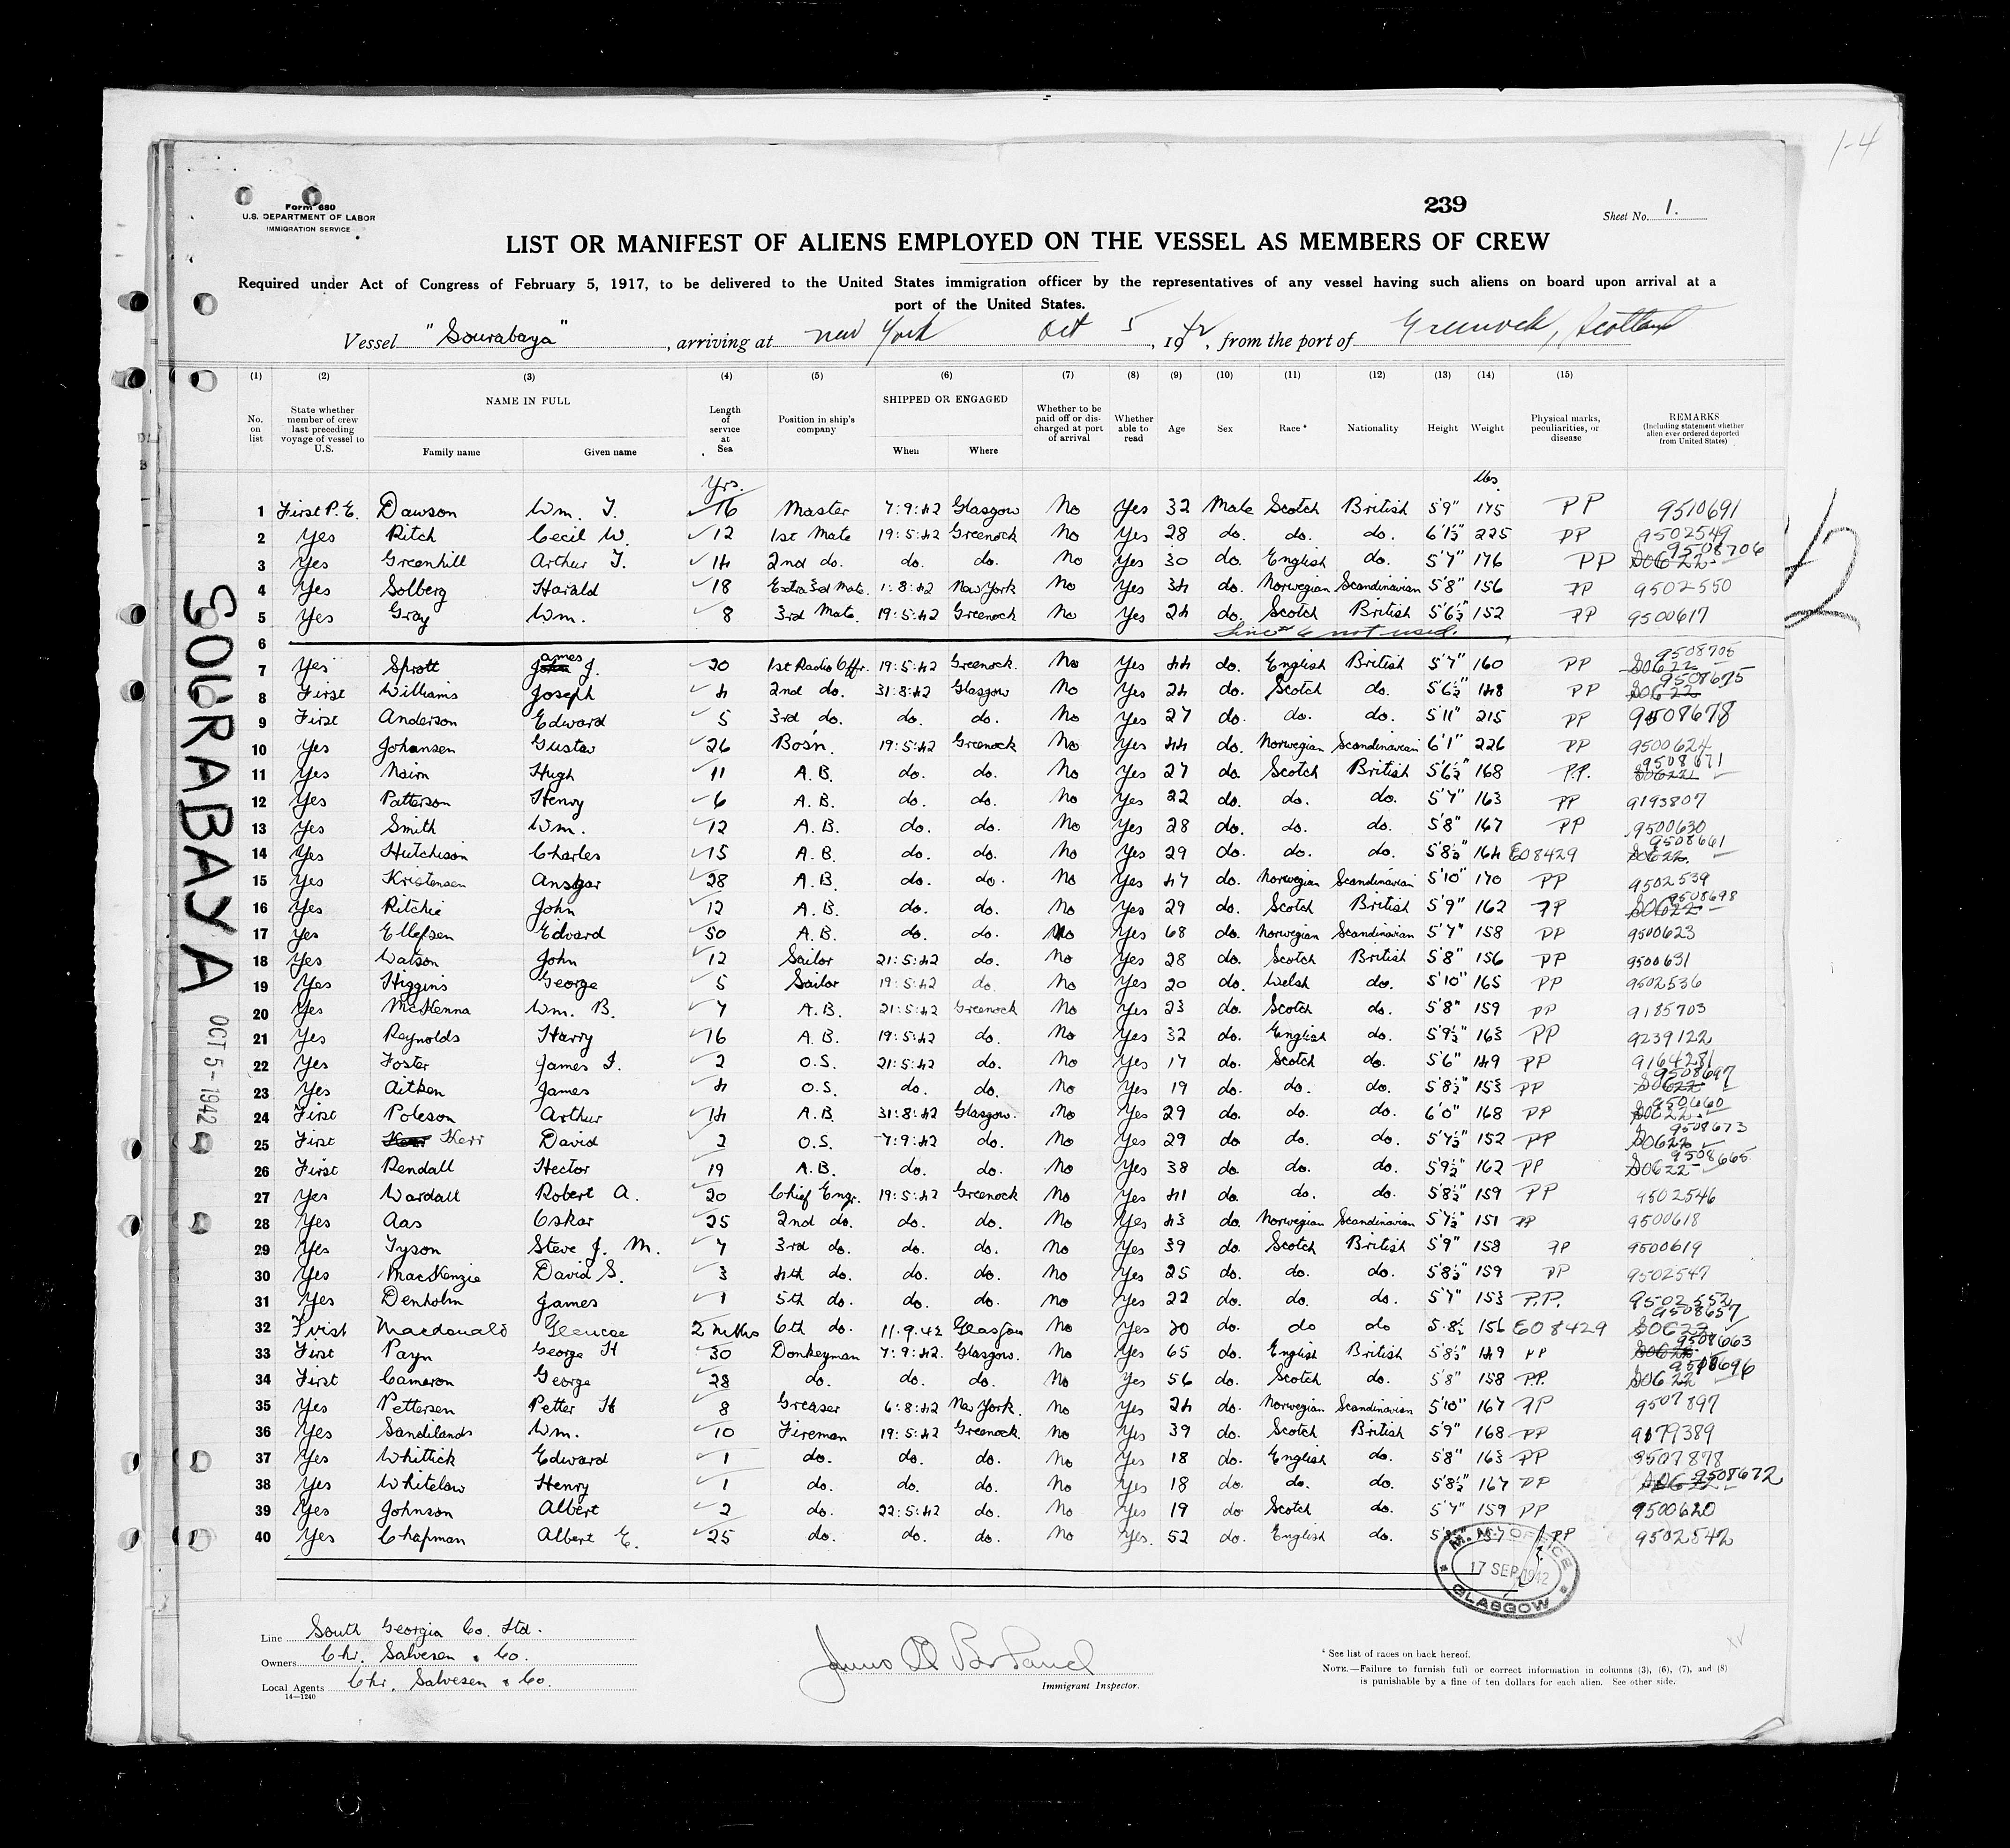 1-4
Form 680
U.S. DEPARTMENT OF LABOR
IMMIGRATION SERVICE
239
Sheet No. 1.
LIST OR MANIFEST OF ALIENS EMPLOYED ON THE VESSEL AS MEMBERS OF CREW
Required under Act of Congress of February 5, 1917, to be delivered to the United States immigration officer by the representatives of any vessel having such aliens on board upon arrival at a
port of the United States.
Vessel "Sourabaya", arriving at New York Oct 5, 1942, from the port of Greenock, Scotland
(1) (2) (3) (4) (5) (6) (7) (8) (9) (10) (11) (12) (13) (14) (15)
No. on list State whether member of crew last preceding voyage of vessel to U.S. NAME IN FULL Family name Given name Length of service at Sea Position in ship's company SHIPPED OR ENGAGED When Where Whether to be paid off or discharged at port of arrival Whether able to read Age Sex Race* Nationality Height Weight Physical marks, peculiarities, or disease REMARKS (Including statement whether alien ever ordered deported from United States)
Yrs. lbs.
1 First P.E. Dawson Wm. T. 16 Master 7:9:42 Glasgow No Yes 32 Male Scotch British 5'9" 175 PP 9510691
2 Yes Ritch Cecil W. 12 1st Mate 19:5:42 Greenock No Yes 28 do. do. do. 6'1½" 225 PP 9502549
3 Yes Greenhill Arthur T. 14 2nd do. do. do. No Yes 30 do. English do. 5'7" 176 PP 9508706
4 Yes Solberg Harald 18 Extra 3rd Mate. 1:8:42 New York No Yes 34 do. Norwegian Scandinavian 5'8" 156 PP 9502550
5 Yes Gray Wm. 8 3rd Mate. 19:5:42 Greenock No Yes 24 do. Scotch British 5'6½" 152 PP 9500617
6 Line # 6 not used.
7 Yes Sprott James J. 20 1st Radio Offr. 19:5:42 Greenock. No Yes 44 do. English British 5'7" 160 PP 9508705
8 First Williams Joseph 4 2nd do. 31:8:42 Glasgow No Yes 24 do. Scotch do. 5'6½" 148 PP 9508675
9 First Anderson Edward 5 3rd do. do. do. No Yes 27 do. do. do. 5'11" 215 PP 9508678
10 Yes Johansen Gustav 26 Bos'n. 19:5:42 Greenock No Yes 44 do. Norwegian Scandinavian 6'1" 226 PP 9500624
11 Yes Nairn Hugh 11 A.B. do. do. No Yes 27 do. Scotch British 5'6½" 168 P.P. 9508671
12 Yes Patterson Henry 6 A.B. do. do. No Yes 22 do. do. do. 5'7" 163 PP 9193807
13 Yes Smith Wm. 12 A.B. do. do. No Yes 28 do. do. do. 5'8" 167 PP 9500630
14 Yes Hutchison Charles 15 A.B. do. do. No Yes 29 do. do. do. 5'8½" 164 E08429 9508661
15 Yes Kristensen Ansgar 28 A.B. do. do. No Yes 47 do. Norwegian Scandinavian 5'10" 170 PP 9502539
16 Yes Ritchie John 12 A.B. do. do. No Yes 29 do. Scotch British 5'9" 162 PP 9508698
17 Yes Ellefsen Edvard 50 A.B. do. do. No Yes 68 do. Norwegian Scandinavian 5'7" 158 PP 9500623
18 Yes Watson John 12 Sailor 21:5:42 do. No Yes 28 do. Scotch British 5'8" 156 PP 9500631
19 Yes Higgins George 5 Sailor 19:5:42 do. No Yes 20 do. Welsh do. 5'10" 165 PP 9502536
20 Yes McKenna Wm. B. 7 A.B. 21:5:42 Greenock No Yes 23 do. Scotch do. 5'8" 159 PP 9185703
21 Yes Reynolds Harry 16 A.B. 19:5:42 do. No Yes 32 do. English do. 5'9½" 163 PP 9239122
22 Yes Foster James I. 2 O.S. 21:5:42 do. No Yes 17 do. Scotch do. 5'6" 149 PP 9164281
23 Yes Aitken James 4 O.S. do. do. No Yes 19 do. do. do. 5'8½" 153 PP 9508697
24 First Poleson Arthur 14 A.B. 31:8:42 Glasgow. No Yes 29 do. do. do. 6'0" 168 PP 950660
25 First Kerr David 2 O.S. 7:9:42 do. No Yes 29 do. do. do. 5'7½" 152 PP 9508673
26 First Rendall Hector 19 A.B. do. do. No Yes 38 do. do. do. 5'9½" 162 PP 9508665
27 Yes Wardall Robert A. 20 Chief Engr. 19:5:42 Greenock No Yes 41 do. do. do. 5'8½" 159 PP 9502546
28 Yes Aas Oskar 25 2nd do. do. do. No Yes 43 do. Norwegian Scandinavian 5'7½" 151 PP 9500618
29 Yes Tyson Steve J. M. 7 3rd do. do. do. No Yes 39 do. Scotch British 5'9" 158 PP 9500619
30 Yes MacKenzie David S. 3 4th do. do. do. No Yes 25 do. do. do. 5'8½" 159 PP 9502547
31 Yes Denholm James 1 5th do. do. do. No Yes 22 do. do. do. 5'7" 153 P.P. 9502552
32 First Macdonald Glencoe 2 mths 6th do. 11.9.42 Glasgow No Yes 20 do. do do 5.8½ 156 E08429 9508657
33 First Payn George H 30 Donkeyman 7:9:42. Glasgow. No Yes 65 do. English British 5'8½" 149 PP 9508663
34 First Cameron George 28 do. do. do. No Yes 56 do. Scotch do. 5'8" 158 P.P. 9508696
35 Yes Pettersen Petter H 8 Greaser 6:8:42 New York. No Yes 24 do. Norwegian Scandinavian 5'10" 167 PP 9507897
36 Yes Sandilands Wm. 10 Fireman 19:5:42 Greenock. No Yes 39 do. Scotch British 5'9" 168 PP 9179389
37 Yes Whittick Edward 1 do. do. do. No Yes 18 do. English do. 5'8" 163 PP 9507878
38 Yes Whitelaw Henry 1 do. do. do. No Yes 18 do. do. do. 5'8½" 167 PP 9508672
39 Yes Johnson Albert 2 do. 22:5:42 do. No Yes 19 do Scotch do. 5'7" 159 PP 9500620
40 Yes Chapman Albert E. 25 do. do. do. No Yes. 52 do. English do. PP 9502542
SOURABAYA
OCT 5-1942
M. M. OFFICE
17 SEP 1942
GLASGOW
Line South Georgia Co. Ltd.
Owners Chr. Salvesen & Co.
Local Agents Chr. Salvesen & Co.
14-1240
Immigrant Inspector.
* See list of races on back hereof.
NOTE.—Failure to furnish full or correct information in columns (3), (6), (7), and (8)
is punishable by a fine of ten dollars for each alien. See other side.